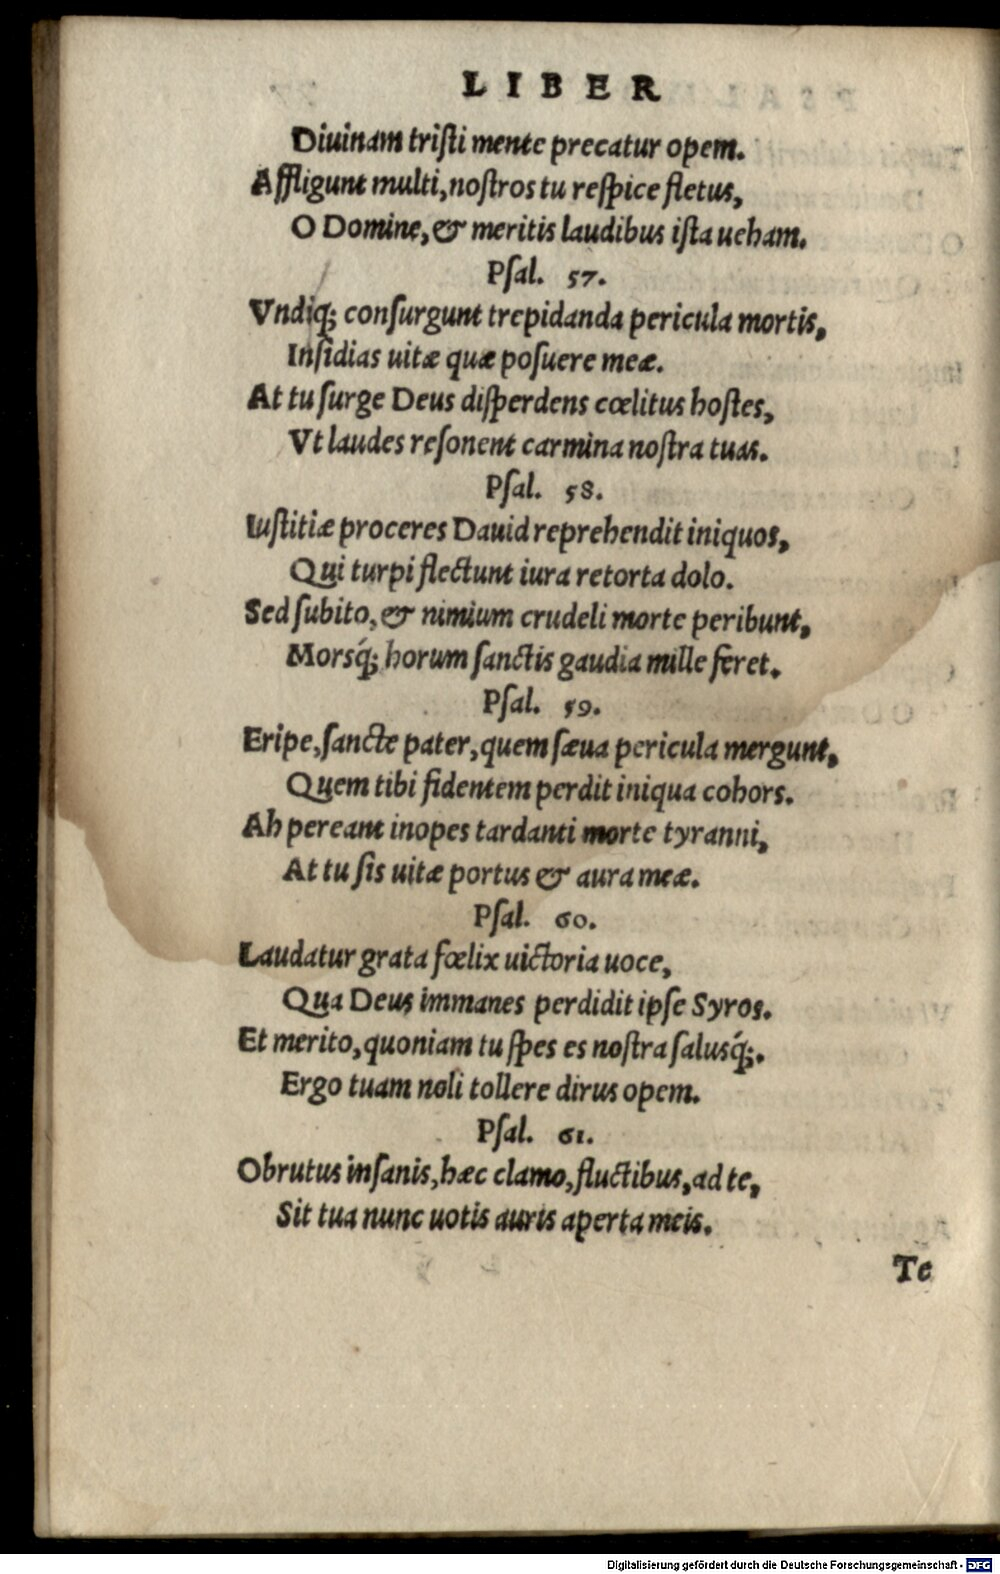 LIBER
Diuinam tristi mente precatur opem.
Affligunt multi, nostros tu respice fletus,
O Domine, & meritis laudibus ista ueham.
Psal. 57.
Vndiq; consurgunt trepidanda pericula mortis,
Insidias uitæ quæ posuere meæ.
At tu surge Deus disperdens cœlitus hostes,
Vt laudes resonent carmina nostra tuas.
Psal. 58.
Iustitiæ proceres Dauid reprehendit iniquos,
Qui turpi flectunt iura retorta dolo.
Sed subito, & nimium crudeli morte peribunt,
Morsq́; horum sanctis gaudia mille feret.
Psal. 59.
Eripe, sancte pater, quem sæua pericula mergunt,
Quem tibi fidentem perdit iniqua cohors.
Ah pereant inopes tardanti morte tyranni,
At tu sis uitæ portus & aura meæ.
Psal. 60.
Laudatur grata fœlix uictoria uoce,
Qua Deus immanes perdidit ipse Syros.
Et merito, quoniam tu spes es nostra salusq́;.
Ergo tuam noli tollere dirus opem.
Psal. 61.
Obrutus insanis, hæc clamo, fluctibus, ad te,
Sit tua nunc uotis auris aperta meis.
Te
Digitalisierung gefördert durch die Deutsche Forschungsgemeinschaft - DFG